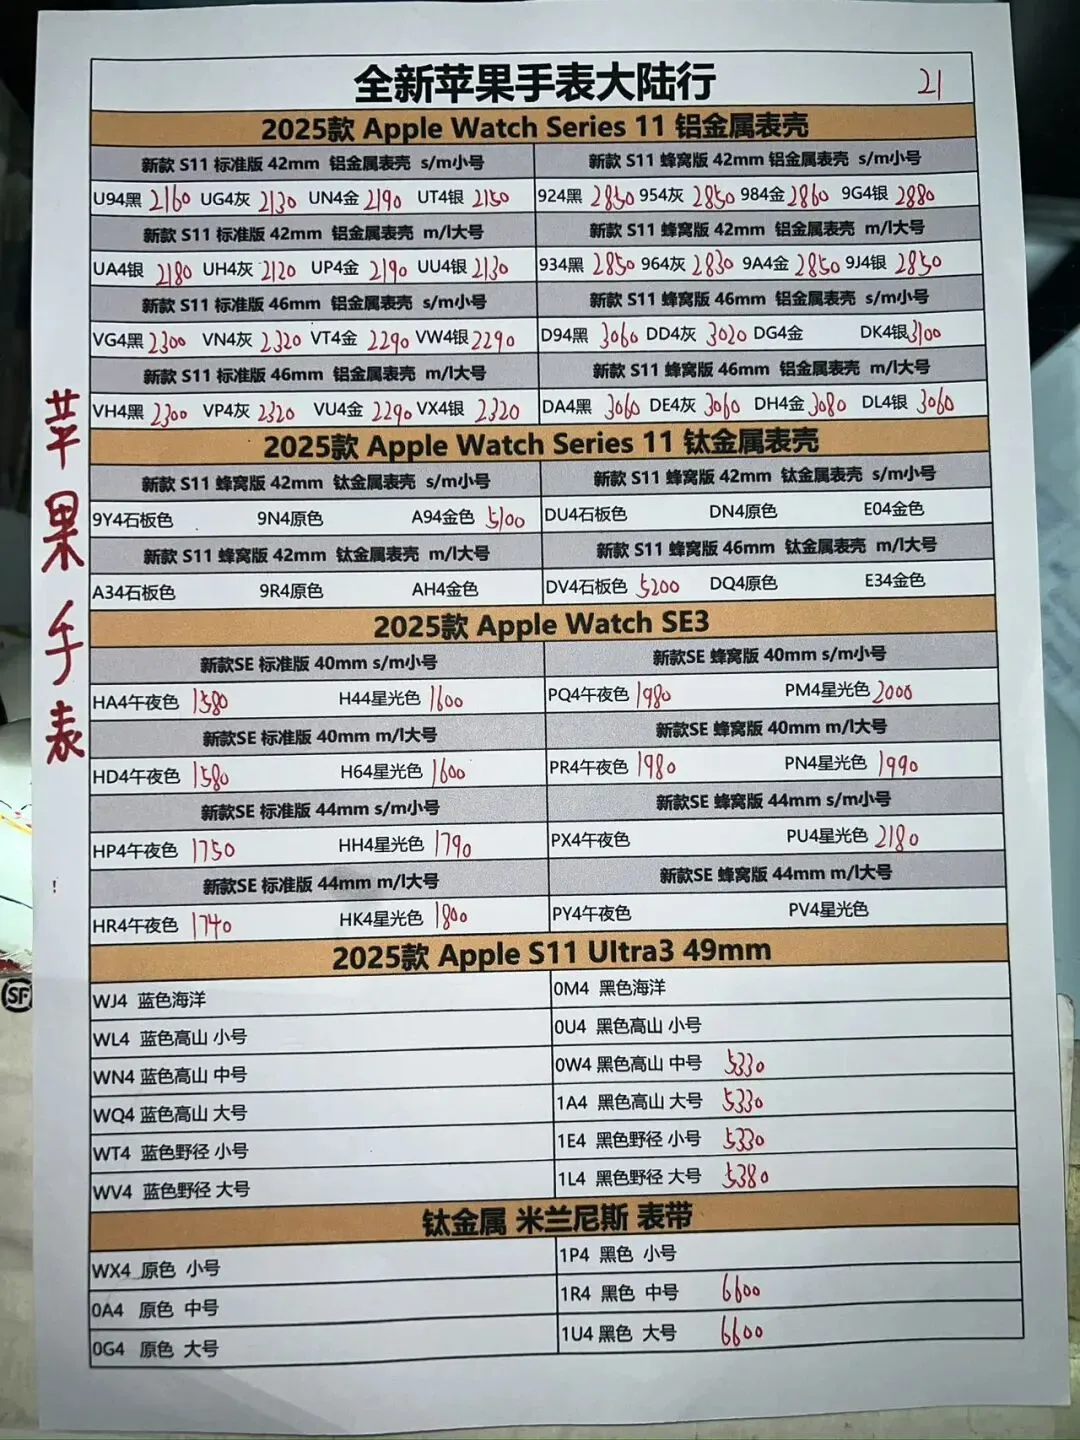 全新苹果手表大陆行 21
2025款 Apple Watch Series 11 铝金属表壳
新款 S11 标准版 42mm 铝金属表壳 s/m小号 新款 S11 蜂窝版 42mm 铝金属表壳 s/m小号
U94黑 2160 UG4灰 2130 UN4金 2190 UT4银 2150 924黑 2850 954灰 2850 984金 2860 9G4银 2880
新款 S11 标准版 42mm 铝金属表壳 m/l大号 新款 S11 蜂窝版 42mm 铝金属表壳 m/l大号
UA4银 2180 UH4灰 2120 UP4金 2190 UU4银 2130 934黑 2850 964灰 2830 9A4金 2850 9J4银 2850
新款 S11 标准版 46mm 铝金属表壳 s/m小号 新款 S11 蜂窝版 46mm 铝金属表壳 s/m小号
VG4黑 2300 VN4灰 2320 VT4金 2290 VW4银 2290 D94黑 3060 DD4灰 3020 DG4金 DK4银 3100
新款 S11 标准版 46mm 铝金属表壳 m/l大号 新款 S11 蜂窝版 46mm 铝金属表壳 m/l大号
VH4黑 2300 VP4灰 2320 VU4金 2290 VX4银 2320 DA4黑 3060 DE4灰 3060 DH4金 3080 DL4银 3060
2025款 Apple Watch Series 11 钛金属表壳
新款 S11 蜂窝版 42mm 钛金属表壳 s/m小号 新款 S11 蜂窝版 42mm 钛金属表壳 s/m小号
9Y4石板色 9N4原色 A94金色 5100 DU4石板色 DN4原色 E04金色
新款 S11 蜂窝版 42mm 钛金属表壳 m/l大号 新款 S11 蜂窝版 46mm 钛金属表壳 m/l大号
A34石板色 9R4原色 AH4金色 DV4石板色 5200 DQ4原色 E34金色
2025款 Apple Watch SE3
新款SE 标准版 40mm s/m小号 新款SE 蜂窝版 40mm s/m小号
HA4午夜色 1580 H44星光色 1600 PQ4午夜色 1980 PM4星光色 2000
新款SE 标准版 40mm m/l大号 新款SE 蜂窝版 40mm m/l大号
HD4午夜色 1580 H64星光色 1600 PR4午夜色 1980 PN4星光色 1990
新款SE 标准版 44mm s/m小号 新款SE 蜂窝版 44mm s/m小号
HP4午夜色 1750 HH4星光色 1790 PX4午夜色 PU4星光色 2180
新款SE 标准版 44mm m/l大号 新款SE 蜂窝版 44mm m/l大号
HR4午夜色 1740 HK4星光色 1800 PY4午夜色 PV4星光色
2025款 Apple S11 Ultra3 49mm
WJ4 蓝色海洋 0M4 黑色海洋
WL4 蓝色高山 小号 0U4 黑色高山 小号
WN4 蓝色高山 中号 0W4 黑色高山 中号 5330
WQ4 蓝色高山 大号 1A4 黑色高山 大号 5330
WT4 蓝色野径 小号 1E4 黑色野径 小号 5330
WV4 蓝色野径 大号 1L4 黑色野径 大号 5380
钛金属 米兰尼斯 表带
WX4 原色 小号 1P4 黑色 小号
0A4 原色 中号 1R4 黑色 中号 6600
0G4 原色 大号 1U4 黑色 大号 6600
苹果手表
SF